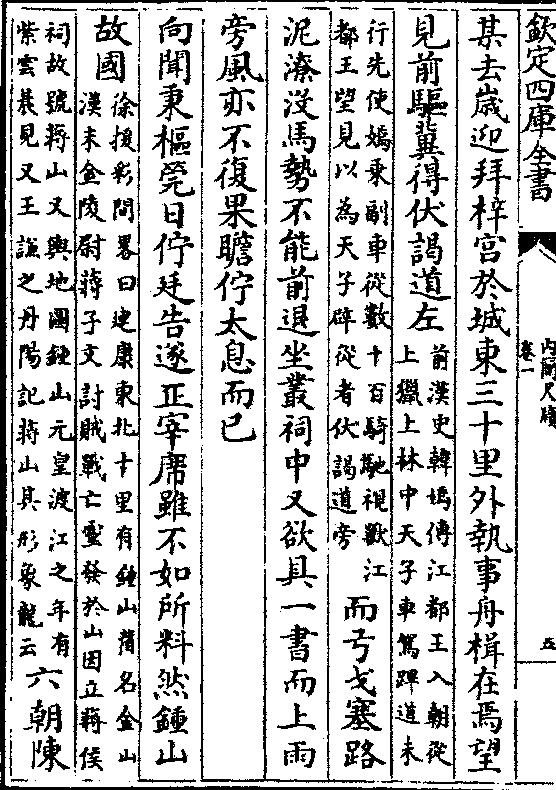 欽定四庫全書
內簡尺牘
卷一
五
某去歲迎拜梓宮於城東三十里外執事舟楫在焉望
見前驅冀得伏謁道左
前漢史韓嫣傳江都王入朝從
上獵上林中天子車駕蹕道未
行先使嫣乗副車從數十百騎馳視獸江
都王望見以為天子辟從者伏謁道旁
而弓戈塞路
泥潦沒馬勢不能前退坐叢祠中又欲具一書而上雨
旁風亦不復果瞻佇太息而已
向聞秉樞筦日佇廷告遂正宰席雖不如所料然鍾山
故國
徐援彩間畧曰建康東北十里有鍾山舊名金山
漢末金陵尉蔣子文討賊戰亡靈發於山因立蔣侯
祠故號蔣山又輿地圖鍾山元皇渡江之年有
紫雲晨見又王謐之丹陽記蔣山其形象龍云
六朝陳